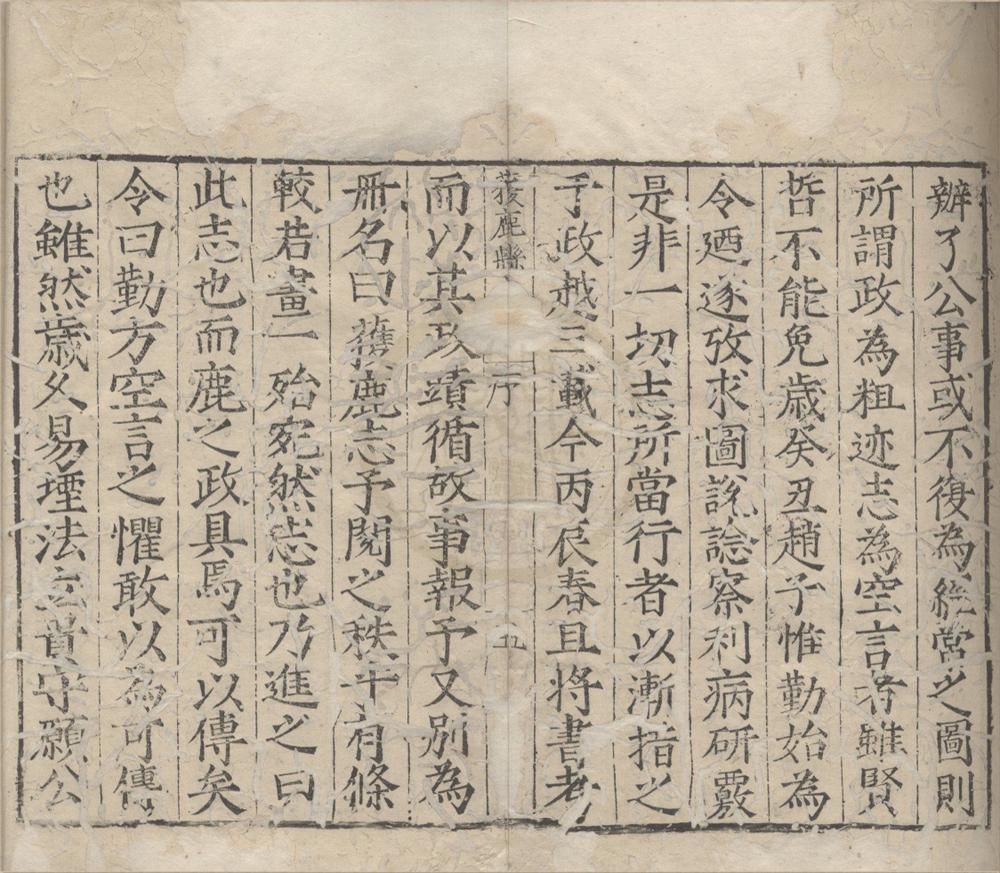 辦了公事或不復為經營之圖則
所謂政為粗迹志為空言者雖賢
哲不能免歲癸丑趙子惟勤始為
令廼遂攷求圖說諗察利病研覈
是非一切志所當行者以漸指之
于政越三載今丙辰春且將書考
獲鹿縣 序 五
而以其政蹟循故事報予又別為
冊名曰獲鹿志予閱之秩乎有條
較若畫一殆宛然志也乃進之曰
此志也而鹿之政具焉可以傳矣
令曰勤方空言之懼敢以為可傳
也雖然歲久易堙法立貴守願公